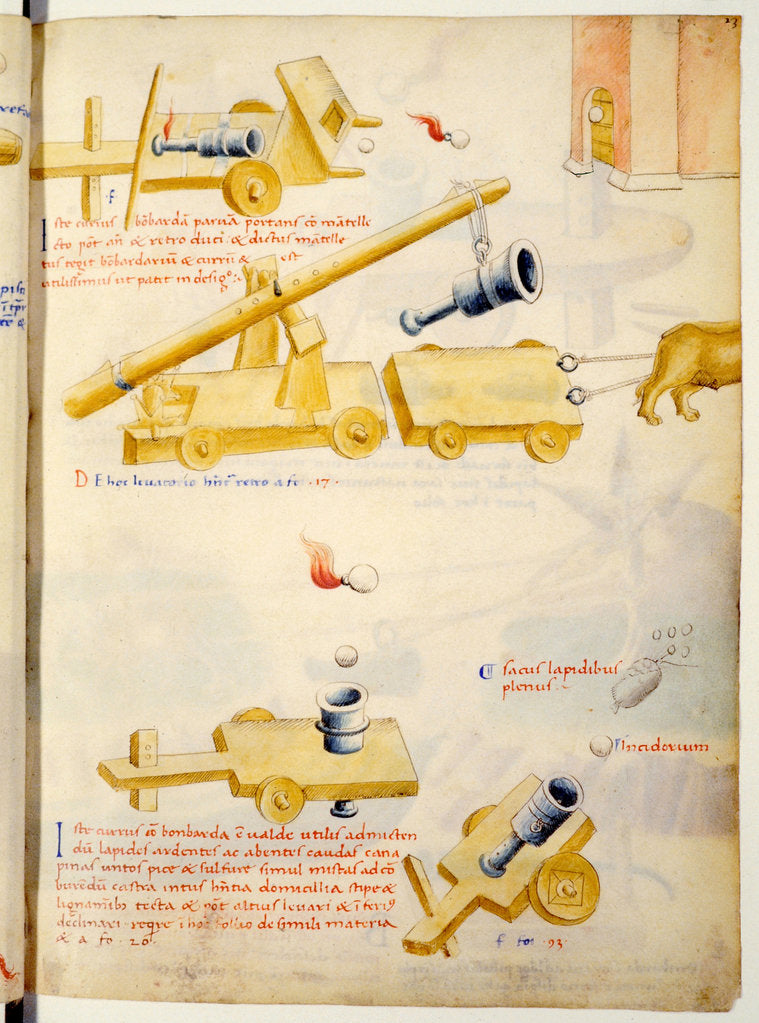 23
·f·
Iste currus bōbardā paruā portans cō mātelle
cto pōt añ & retro duci· & dictus mātelle
tus tegit bōbardariū & currū & est
utilissimus ut patit in desigº:
DE hoc leuatorio hr̄it̄ retro a fo ·17·
¶ sacus lapidibus
plenus:
Incidorium
Iste currus cō bonbarda ē ualde utilis ad mitten
dū lapides ardentes ac abentes caudas cana
pinas untos pice & sulfure simul mistas ad cō
burēdū castra intus hñtia domicillia stipe &
lignamībo tecta & pōt altius leuari & īferiꝰ
declinari· reqre ī hoc follio de simili materia
& a fo· 20·
f fo: ·93·